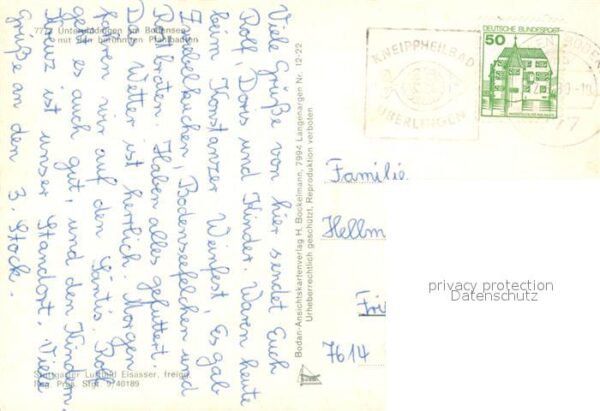 7772 Unteruhldingen am Bodensee
mit den berühmten Pfahlbauten
Viele Grüße von hier sendet Euch
Rolf, Doris und Kinder. Waren heute
beim Konstanzer Weinfest, Es gab
Zwiebelkuchen, Bodenseefelchen und
Radboten. Haben alles gefuttert.
Das Wetter ist herrlich. Morgen
fahren wir auf den Säntis. Rolf
geht es auch gut, und den Kindern.
Kreuz ist unser Standort. Viele
Grüße an den 3. Stock.
Stuttgarter Luftbild Elsässer, freigg.
Reg. Präs. Stgt. 9/40189
Bodan-Ansichtskartenverlag H. Bockelmann, 7994 Langenargen Nr. 12-22
Urheberrechtlich geschützt, Reproduktion verboten
KNEIPPHEILBAD
ÜBERLINGEN
DEUTSCHE BUNDESPOST
50
Familie
Hellm
Fri
7614
privacy protection
Datenschutz